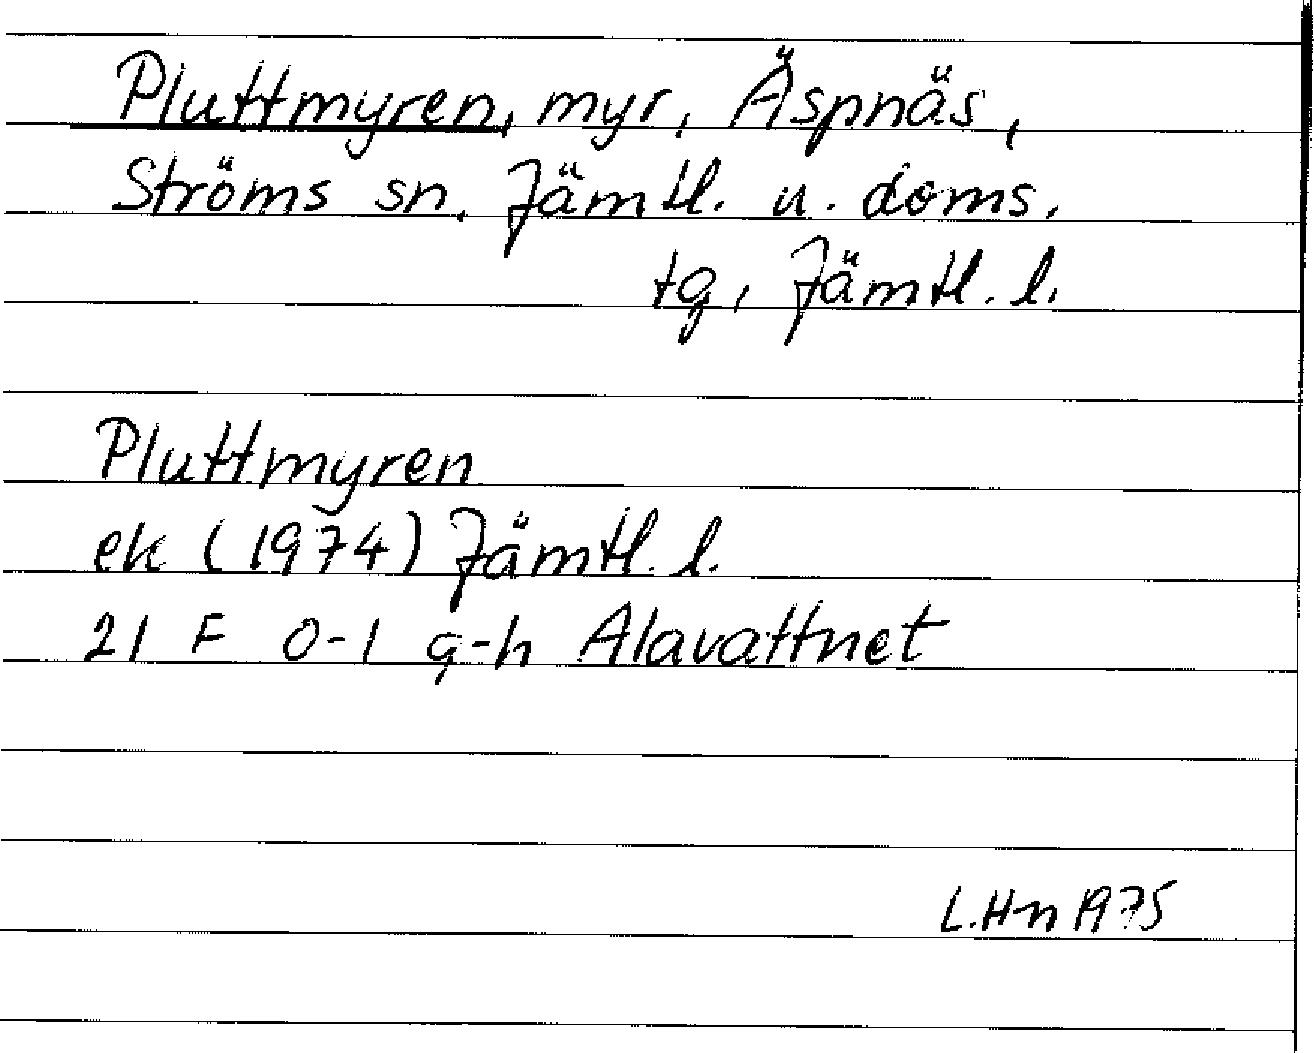 Pluttmyren, myr, Äspnäs,
Ströms sn, Jämtl. u. doms.
tg, Jämtl. l.
Pluttmyren
ek (1974) Jämtl. l.
21 F 0-1 g-h Alavattnet
L.Hn 1975